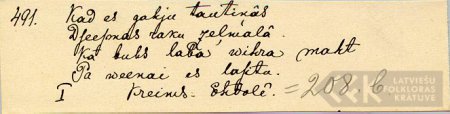 491. Kad es gahju tautinâs
Dseepnas raku zelmalâ.
Ka buhs laba wihra maht
Pa weenai es laſitu.
I Kreims - Ehrbolê. = 208. b
LATVIEŠU
FOLKLORAS
KRĀTUVE